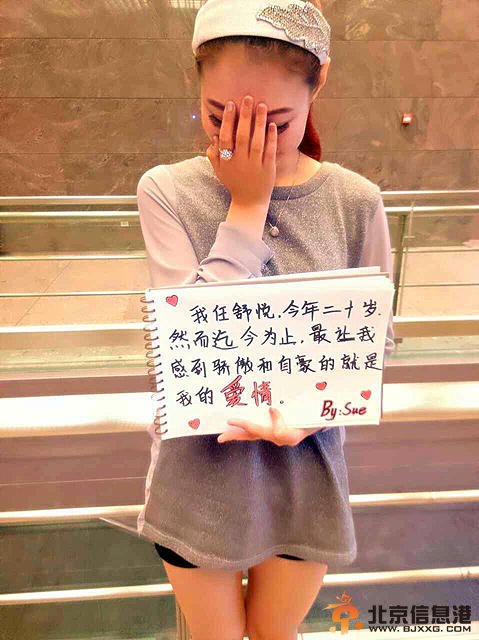 我任舒悦,今年二十岁.
然而迄今为止,最让我
感到骄傲和自豪的就是
我的爱情.
By:Sue
北京信息港
WWW.BJXXG.COM